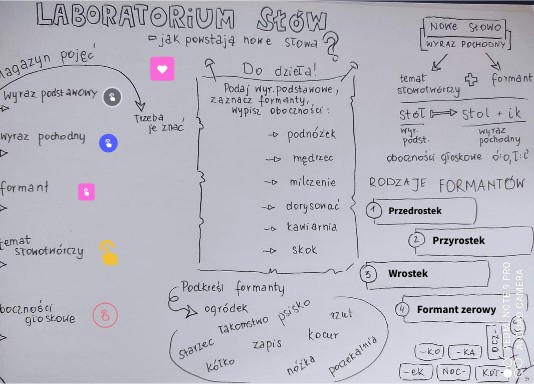 LABORATORIUM SŁÓW
jak powstają nowe słowa?
magazyn pojęć
Wyraz podstawowy
trzeba je znać
wyraz pochodny
formant
temat
słowotwórczy
oboczności
głoskowe
Do dzieła!
Podaj wyr. podstawowe,
zaznacz formanty,
wypisz oboczności:
podnóżek
mędrzec
milczenie
dorysować
kawiarnia
skok
Podkreśl formanty
ogródek
starzec
łakomstwo
psisko
rzut
kółko
zapis
kocur
nóżka
poczekalnia
NOWE SŁOWO
WYRAZ POCHODNY
temat
słowotwórczy
+
formant
stół
stol + ik
wyr.
podst.
wyraz
pochodny
oboczności głoskowe
RODZAJE FORMANTÓW
1 Przedrostek
2 Przyrostek
3 Wrostek
4 Formant zerowy
-KO
-KA
OCZ-
-EK
NOC-
KOT-
REDMI NOTE 9 PRO